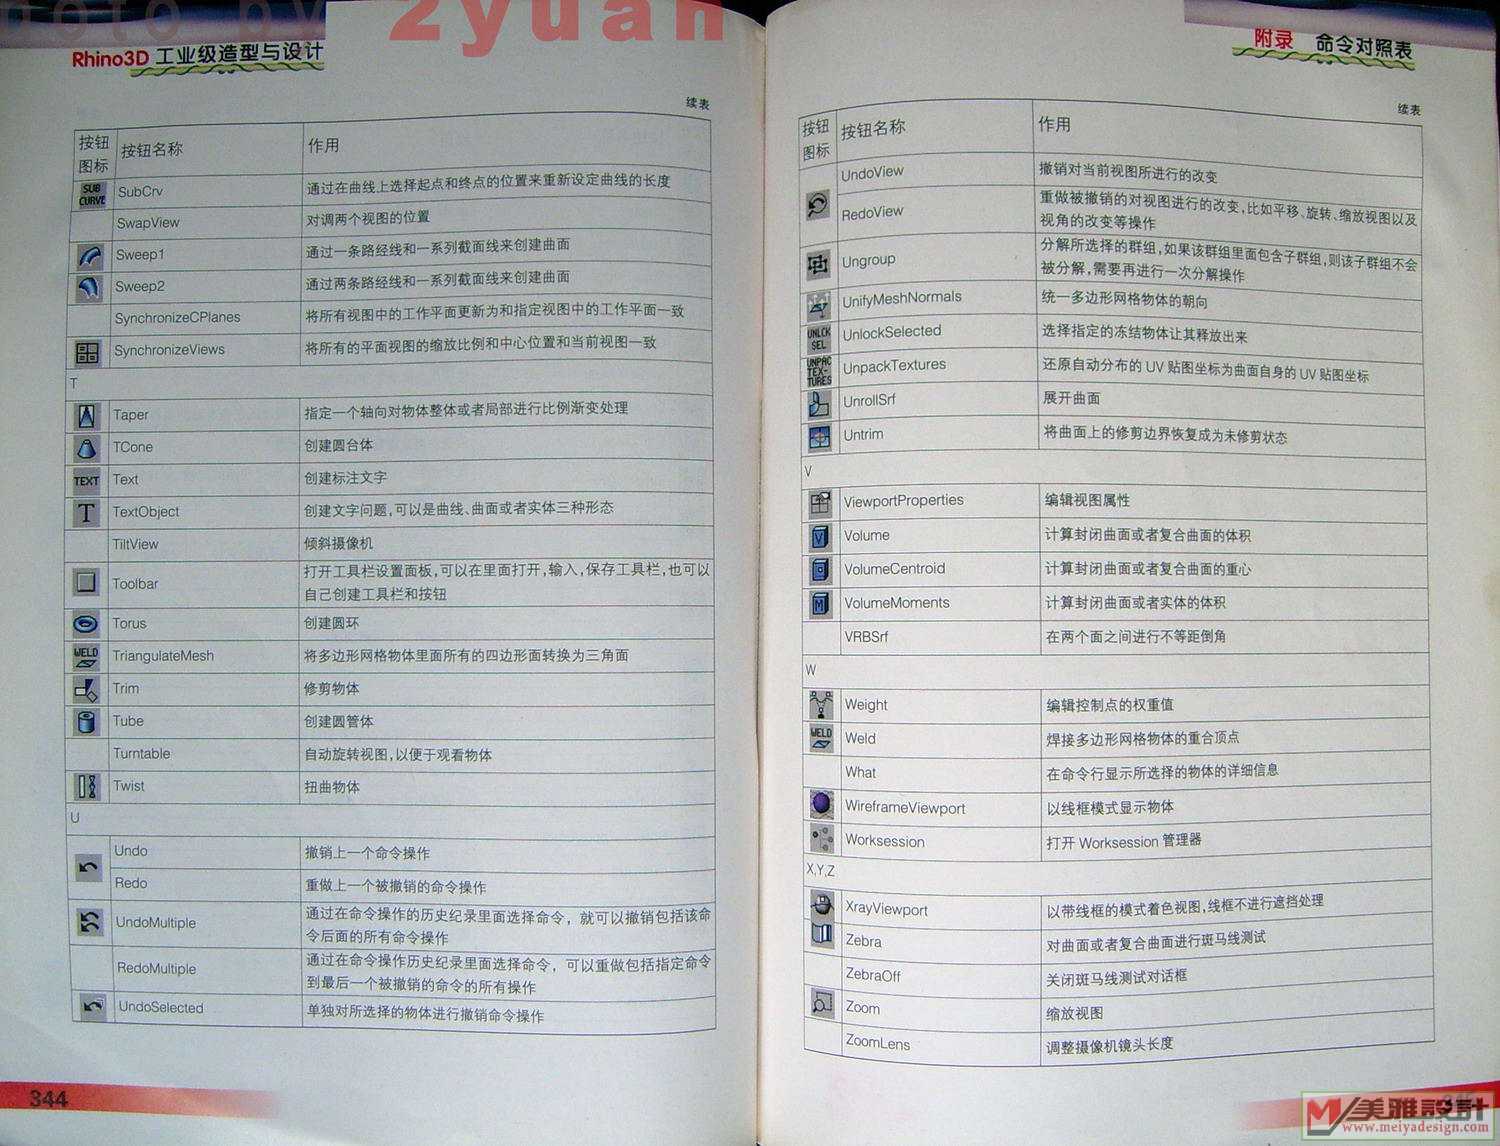 oto by 2yuan
Rhino3D 工业级造型与设计
续表
按钮图标 按钮名称 作用
SUB CURVE SubCrv 通过在曲线上选择起点和终点的位置来重新设定曲线的长度
SwapView 对调两个视图的位置
Sweep1 通过一条路经线和一系列截面线来创建曲面
Sweep2 通过两条路经线和一系列截面线来创建曲面
SynchronizeCPlanes 将所有视图中的工作平面更新为和指定视图中的工作平面一致
SynchronizeViews 将所有的平面视图的缩放比例和中心位置和当前视图一致
T
Taper 指定一个轴向对物体整体或者局部进行比例渐变处理
TCone 创建圆台体
TEXT Text 创建标注文字
T TextObject 创建文字问题,可以是曲线、曲面或者实体三种形态
TiltView 倾斜摄像机
Toolbar 打开工具栏设置面板,可以在里面打开,输入,保存工具栏,也可以
自己创建工具栏和按钮
Torus 创建圆环
WELD TriangulateMesh 将多边形网格物体里面所有的四边形面转换为三角面
Trim 修剪物体
Tube 创建圆管体
Turntable 自动旋转视图,以便于观看物体
Twist 扭曲物体
U
Undo 撤销上一个命令操作
Redo 重做上一个被撤销的命令操作
UndoMultiple 通过在命令操作的历史纪录里面选择命令，就可以撤销包括该命
令后面的所有命令操作
RedoMultiple 通过在命令操作历史纪录里面选择命令，可以重做包括指定命令
到最后一个被撤销的命令的所有操作
UndoSelected 单独对所选择的物体进行撤销命令操作
344
附录 命令对照表
续表
按钮图标 按钮名称 作用
UndoView 撤销对当前视图所进行的改变
RedoView 重做被撤销的对视图进行的改变,比如平移、旋转、缩放视图以及
视角的改变等操作
Ungroup 分解所选择的群组,如果该群组里面包含子群组,则该子群组不会
被分解,需要再进行一次分解操作
UnifyMeshNormals 统一多边形网格物体的朝向
UNLCK SEL UnlockSelected 选择指定的冻结物体让其释放出来
UNPAC TEX- TURES UnpackTextures 还原自动分布的 UV 贴图坐标为曲面自身的 UV 贴图坐标
UnrollSrf 展开曲面
Untrim 将曲面上的修剪边界恢复成为未修剪状态
V
ViewportProperties 编辑视图属性
V Volume 计算封闭曲面或者复合曲面的体积
VolumeCentroid 计算封闭曲面或者复合曲面的重心
M VolumeMoments 计算封闭曲面或者实体的体积
VRBSrf 在两个面之间进行不等距倒角
W
Weight 编辑控制点的权重值
WELD Weld 焊接多边形网格物体的重合顶点
What 在命令行显示所选择的物体的详细信息
WireframeViewport 以线框模式显示物体
Worksession 打开 Worksession 管理器
X,Y,Z
XrayViewport 以带线框的模式着色视图,线框不进行遮挡处理
Zebra 对曲面或者复合曲面进行斑马线测试
ZebraOff 关闭斑马线测试对话框
Zoom 缩放视图
ZoomLens 调整摄像机镜头长度
美雅設計
www.meiyadesign.com